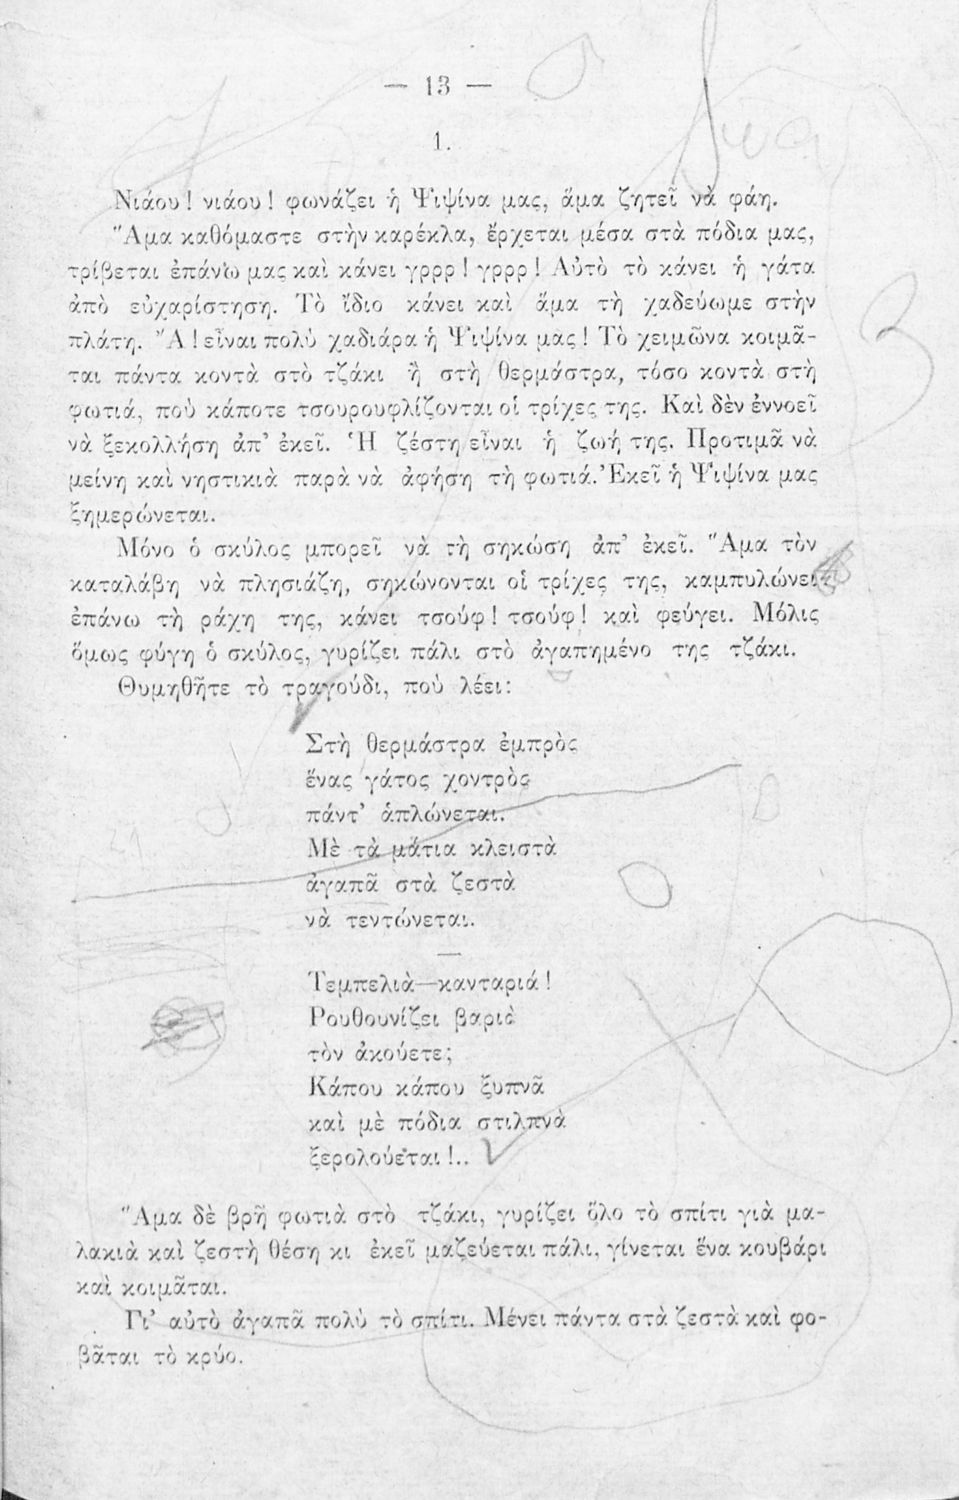 — 13 —
1.
Νιάου! νιάου! φωνάζει ἡ Ψιψίνα μας, ἅμα ζητεῖ νὰ φάῃ.
Ἅμα καθόμαστε στὴν καρέκλα, ἔρχεται μέσα στὰ πόδια μας,
τρίβεται ἐπάνω μας καὶ κάνει γρρρ! γρρρ! Αὐτὸ τὸ κάνει ἡ γάτα
ἀπὸ εὐχαρίστηση. Τὸ ἴδιο κάνει καὶ ἅμα τὴ χαδεύωμε στὴν
πλάτη. Ἄ! εἶναι πολὺ χαδιάρα ἡ Ψιψίνα μας! Τὸ χειμῶνα κοιμᾶ-
ται πάντα κοντὰ στὸ τζάκι ἢ στὴ θερμάστρα, τόσο κοντὰ στὴ
φωτιά, ποὺ κάποτε τσουρουφλίζονται οἱ τρίχες της. Καὶ δὲν ἐννοεῖ
νὰ ξεκολλήση ἀπ' ἐκεῖ. Ἡ ζέστη εἶναι ἡ ζωή της. Προτιμᾶ νὰ
μείνη καὶ νηστικιὰ παρὰ νὰ ἀφήση τὴ φωτιά. Ἐκεῖ ἡ Ψιψίνα μας
ξημερώνεται.
Μόνο ὁ σκύλος μπορεῖ νὰ τὴ σηκώση ἀπ' ἐκεῖ. Ἅμα τὸν
καταλάβη νὰ πλησιάζη, σηκώνονται οἱ τρίχες της, καμπυλώνει
ἐπάνω τὴ ράχη της, κάνει τσούφ! τσούφ! καὶ φεύγει. Μόλις
ὅμως φύγη ὁ σκύλος, γυρίζει πάλι στὸ ἀγαπημένο της τζάκι.
Θυμηθῆτε τὸ τραγούδι, ποὺ λέει:
Στὴ θερμάστρα ἐμπρὸς
ἕνας γάτος χοντρὸς
πάντ' ἁπλώνεται.
Μὲ τὰ μάτια κλειστὰ
ἀγαπᾶ στὰ ζεστὰ
νὰ τεντώνεται.
—
Τεμπελιὰ—κανταριά!
Ρουθουνίζει βαριὰ
τὸν ἀκούετε;
Κάπου κάπου ξυπνᾶ
καὶ μὲ πόδια στιλπνὰ
ξερολούεται!..
Ἅμα δὲ βρῆ φωτιὰ στὸ τζάκι, γυρίζει ὅλο τὸ σπίτι γιὰ μα-
λακιὰ καὶ ζεστὴ θέση κι ἐκεῖ μαζεύεται πάλι, γίνεται ἕνα κουβάρι
καὶ κοιμᾶται.
Γι' αὐτὸ ἀγαπᾶ πολὺ τὸ σπίτι. Μένει πάντα στὰ ζεστὰ καὶ φο-
βᾶται τὸ κρύο.